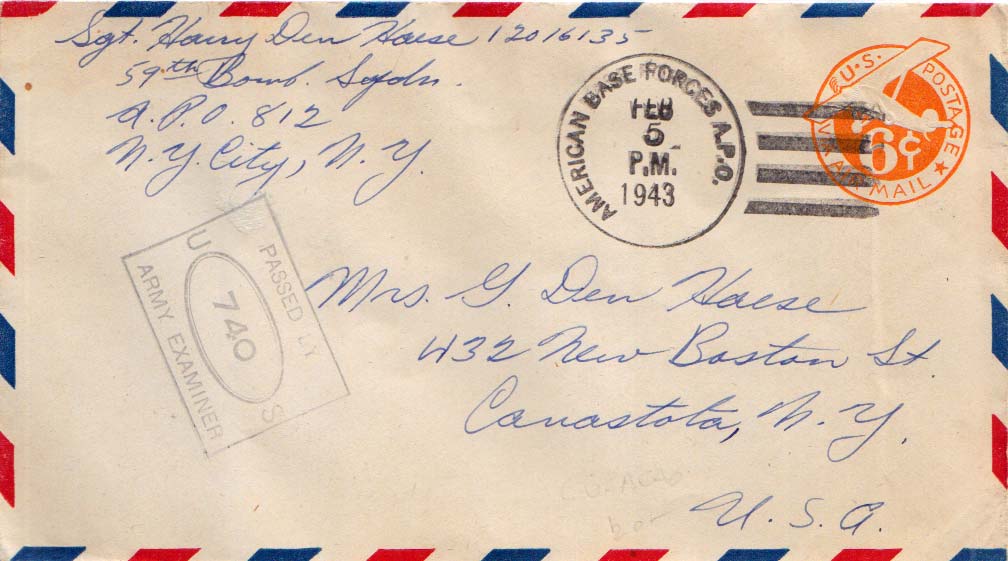 Sgt. Harry Den Haese 12016135
59th Bomb. Sqdn.
A.P.O. 812
N.Y. City, N.Y.
AMERICAN BASE FORCES A.P.O.
FEB
5
P.M.
1943
U.S. POSTAGE
6¢
VIA AIR MAIL
PASSED BY
U 740 S
ARMY EXAMINER
Mrs. G. Den Haese
432 New Boston St.
Canastota, N.Y.
U.S.A.
CURACAO